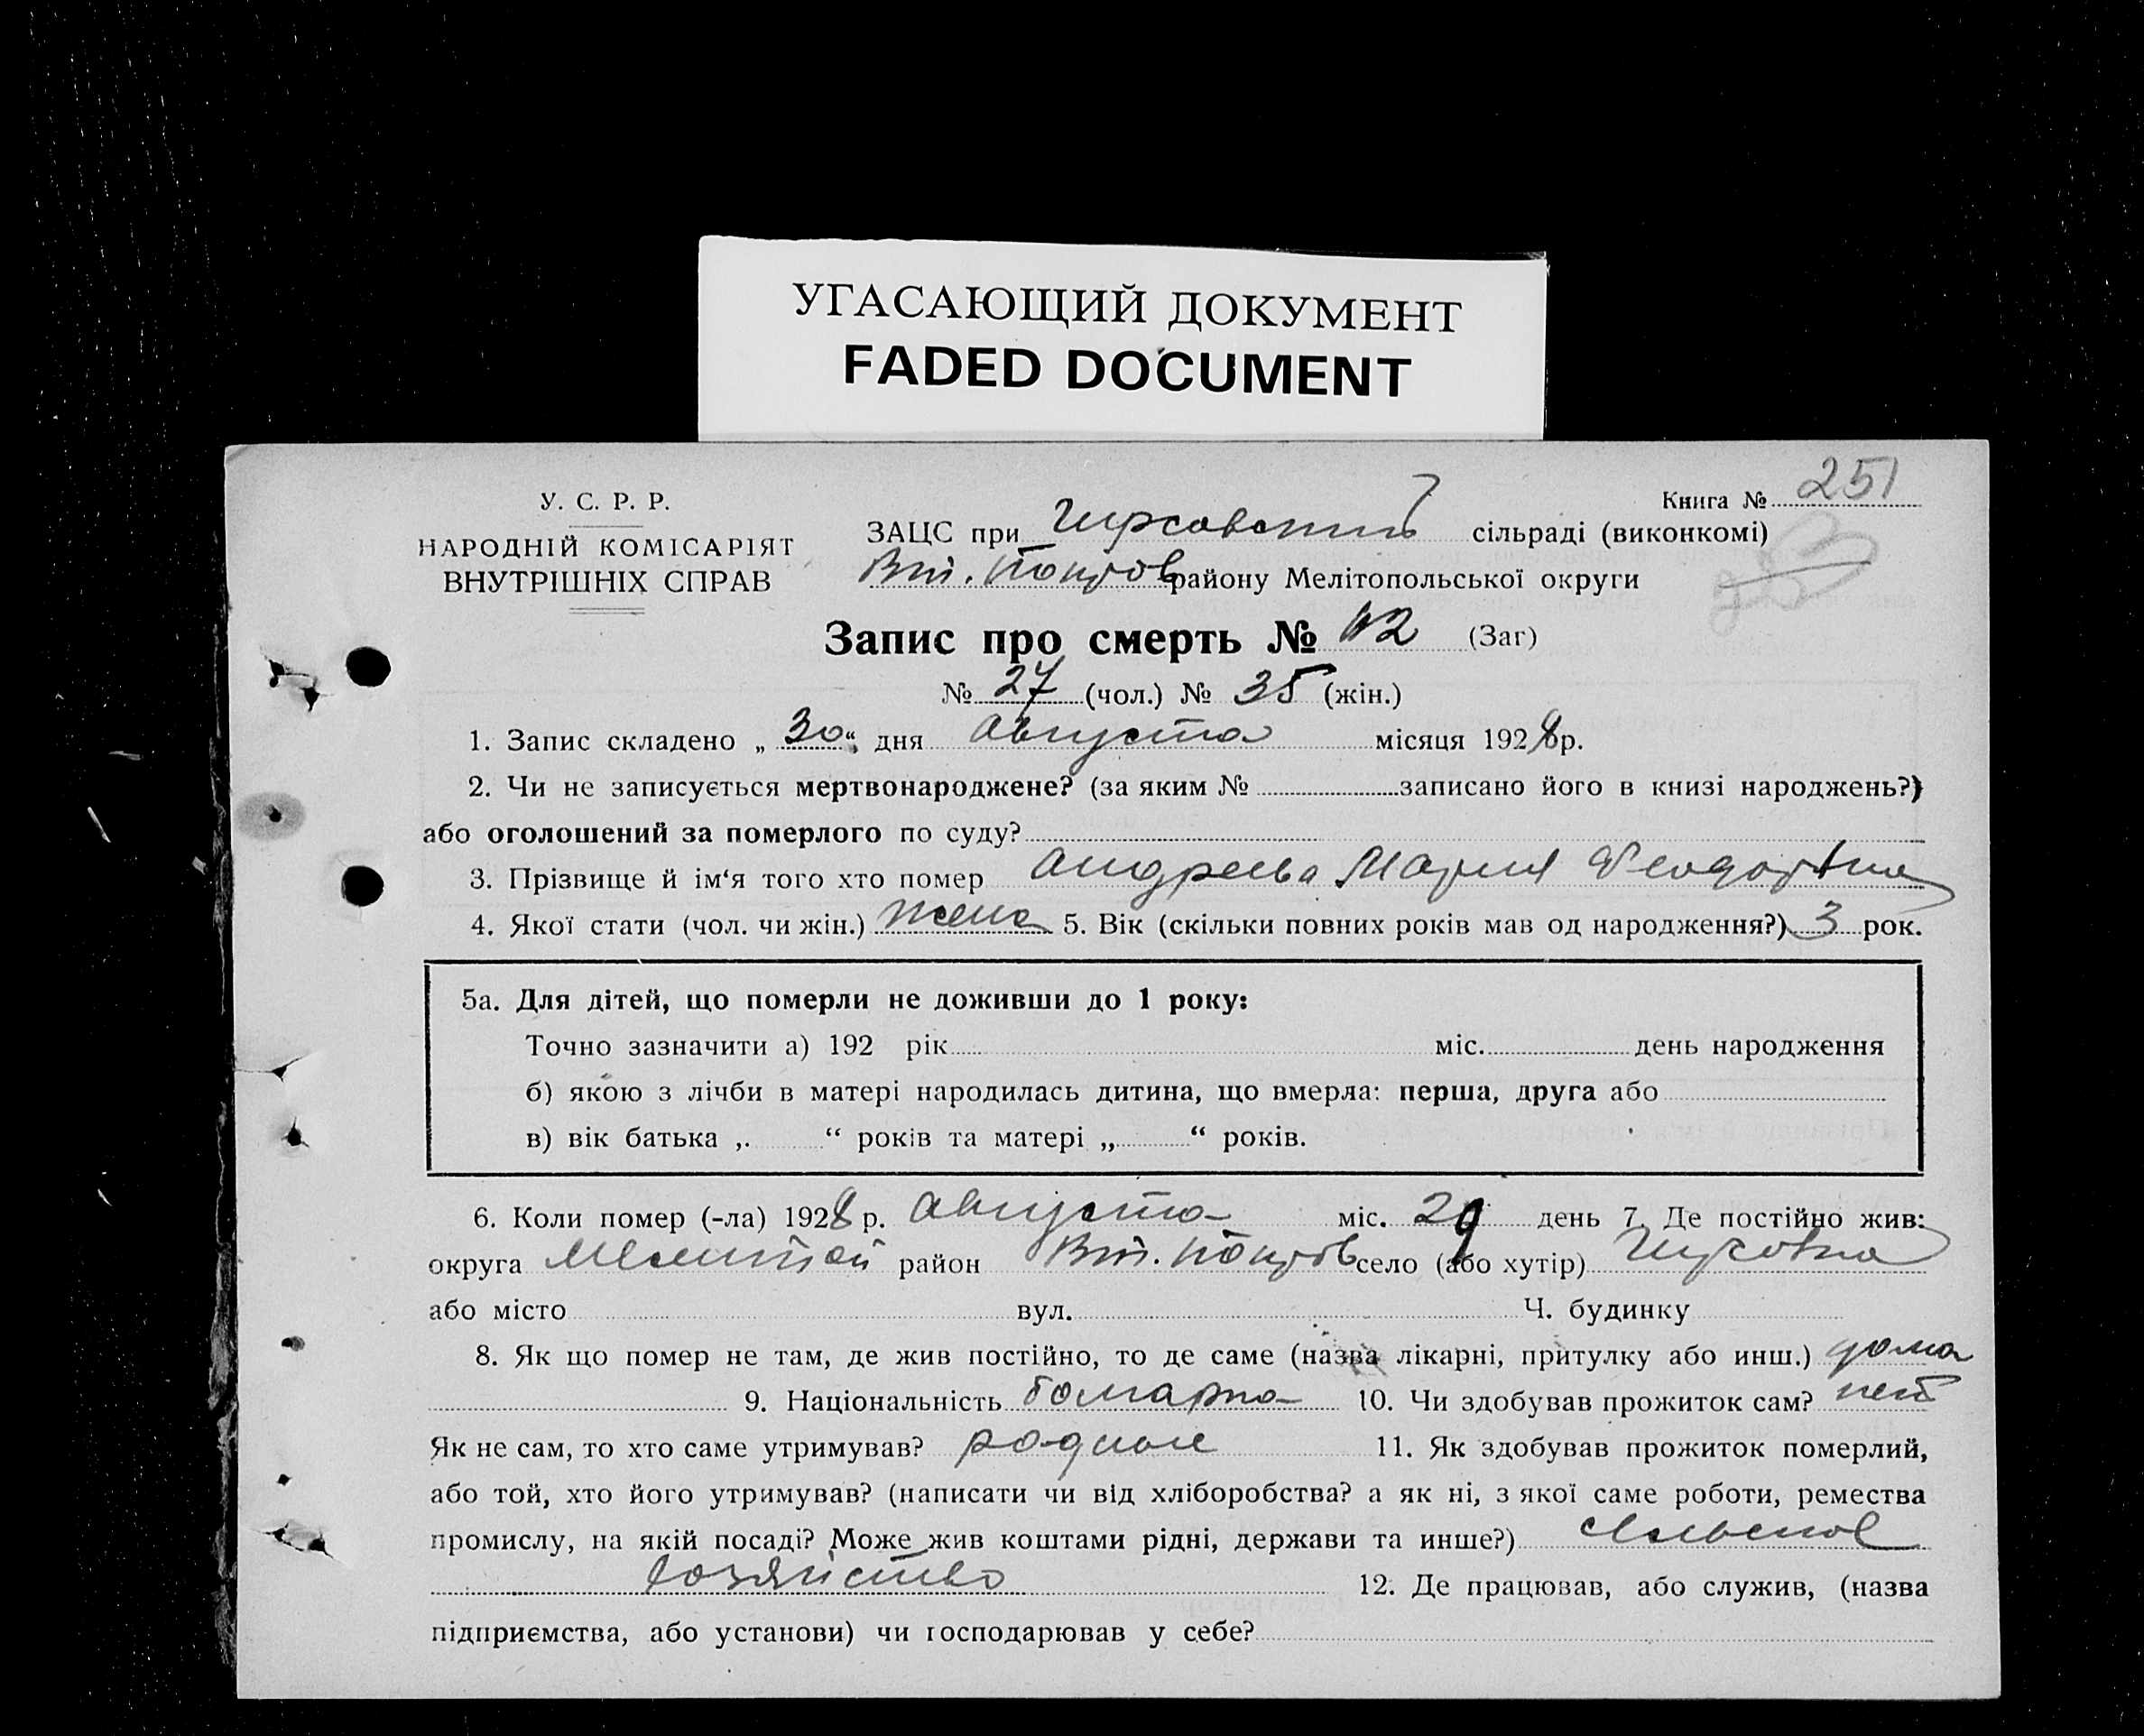 УГАСАЮЩИЙ ДОКУМЕНТ
FADED DOCUMENT
У. С. Р. Р.
НАРОДНІЙ КОМІСАРІЯТ
ВНУТРІШНІХ СПРАВ
Книга № 251
ЗАЦС при Гирсовский сільраді (виконкомі)
району Мелітопольської округи
Запис про смерть № 42 (Заг)
№ 27 (чол.) № 35 (жін.)
1. Запис складено „ 30 “ дня Августа місяця 1928 р.
2. Чи не записується мертвонароджене? (за яким № записано його в книзі народжень?)
або оголошений за померлого по суду?
3. Прізвище й ім‘я того хто помер Андреева Мария Феодоровна
4. Якої стати (чол. чи жін.) жена 5. Вік (скільки повних років мав од народження?) 3 рок.
5а. Для дітей, що померли не доживши до 1 року:
Точно зазначити а) 192 рік міс. день народження
б) якою з лічби в матері народилась дитина, що вмерла: перша, друга або
в) вік батька „ “ років та матері „ “ років.
6. Коли помер (-ла) 1928 р. Августа міс. 29 день 7. Де постійно жив:
округа Мелитоп район село (або хутір) Гирсовка
або місто вул. Ч. будинку
8. Як що помер не там, де жив постійно, то де саме (назва лікарні, притулку або инш.) дома
9. Національність болгарка 10. Чи здобував прожиток сам? нет
Як не сам, то хто саме утримував? родные 11. Як здобував прожиток померлий,
або той, хто його утримував? (написати чи від хліборобства? а як ні, з якої саме роботи, ремества
промислу, на якій посаді? Може жив коштами рідні, держави та инше?) сельское
хозяйство 12. Де працював, або служив, (назва
підприємства, або установи) чи господарював у себе?